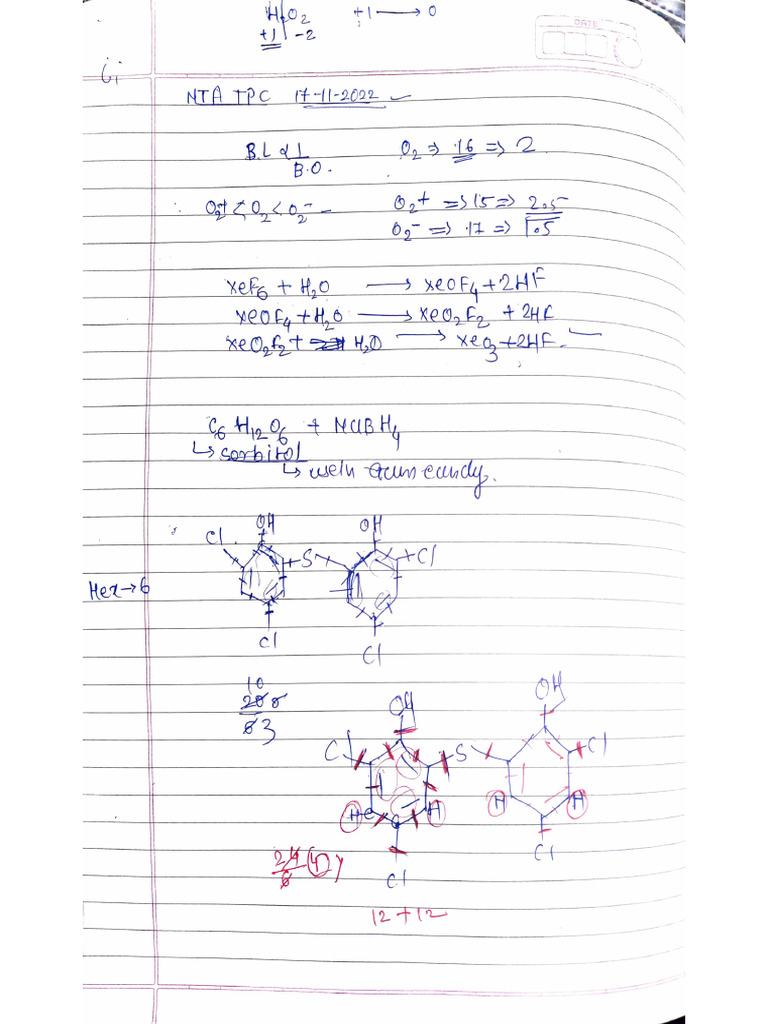 H2O2 +1 → 0
+1 -2
DATE
NTA TPC 17-11-2022
B.L α 1/B.O. O2 ⇒ 16 ⇒ 2
∴ O2+ < O2 < O2- O2+ ⇒ 15 ⇒ 2.5
O2- ⇒ 17 ⇒ 1.5
XeF6 + H2O → XeOF4 + 2HF
XeOF4 + H2O → XeO2F2 + 2HF
XeO2F2 + H2O → XeO3 + 2HF
C6H12O6 + NaBH4
↳ sorbitol
↳ candy.
OH OH
Cl S Cl
Hex → 6
Cl Cl
10
3
OH OH
Cl S Cl
H H H H
Cl Cl
24 4
6
12 + 12